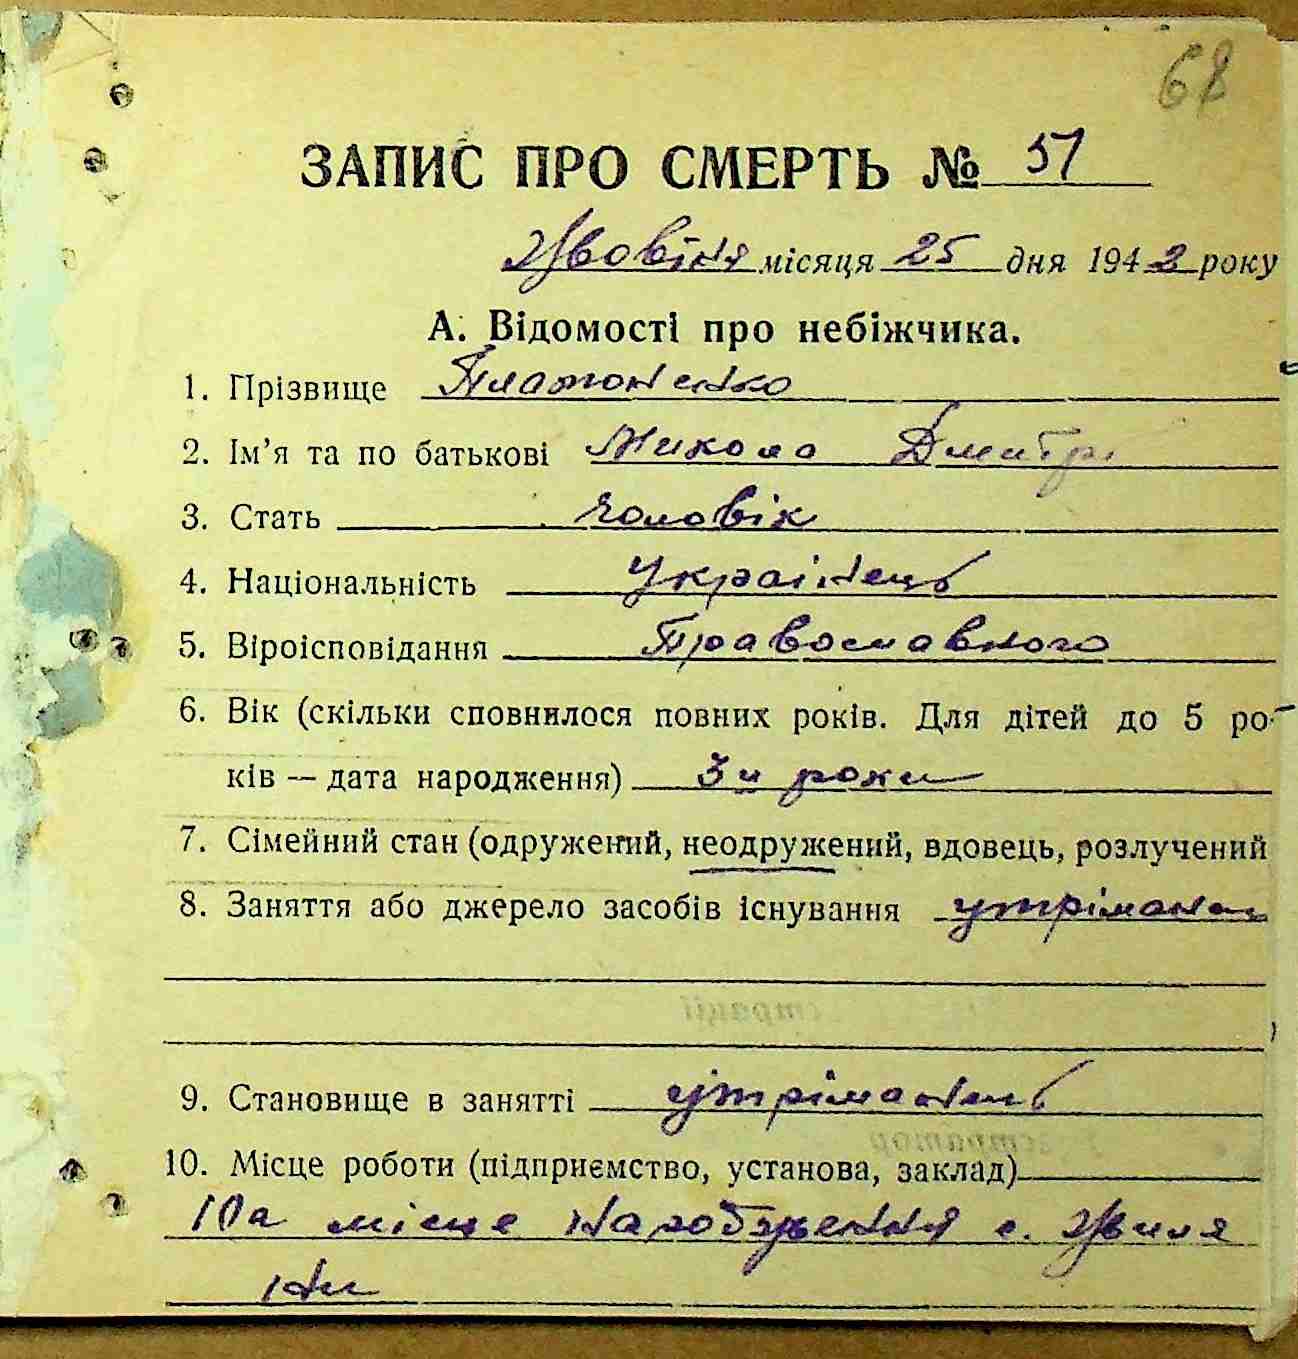 68
ЗАПИС ПРО СМЕРТЬ № 57
місяця 25 дня 1942 року
А. Відомості про небіжчика.
1. Прізвище Платоненко
2. Ім’я та по батькові Микола Дмитр
3. Стать чоловік
4. Національність українець
5. Віроісповідання Православного
6. Вік (скільки сповнилося повних років. Для дітей до 5 ро-
ків — дата народження) 3и роки
7. Сімейний стан (одружений, неодружений, вдовець, розлучений
8. Заняття або джерело засобів існування
9. Становище в занятті утріманець
10. Місце роботи (підприємство, установа, заклад)
10а місце народження с.